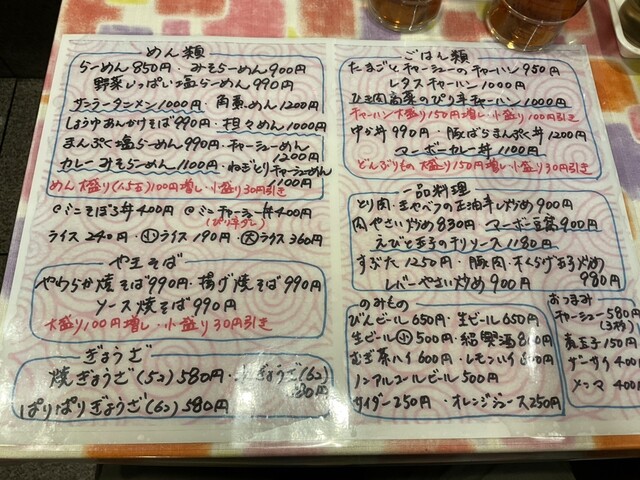 めん類
らーめん 850円・みそらーめん 900円
野菜いっぱい塩らーめん 990円
サンラータンメン 1000円・広東めん 1200円
しょうゆあんかけそば 990円・担々めん 1000円
まんぷく塩らーめん 990円・チャーシューめん 1200円
カレーみそらーめん 1100円・ねぎとりチャーシューめん 1100円
めん大盛り(1.5玉)100円増し・小盛り30円引き
@ミニそぼろ丼 400円 @ミニチャーシュー丼 400円
ライス 240円・小ライス 190円・大ライス 360円
やきそば
やわらか焼そば 990円・揚げ焼そば 990円
ソース焼そば 990円
大盛り100円増し・小盛り30円引き
ぎょうざ
焼ぎょうざ(5コ)580円・ぎょうざ(6コ)
ぱりぱりぎょうざ(6コ)580円
ごはん類
たまごとチャーシューのチャーハン 950円
レタスチャーハン 1000円
ひき肉高菜のぴり辛チャーハン 1000円
チャーハン大盛り150円増し・小盛り100円引き
中か丼 990円・豚ばらまんぷく丼 1200円
マーボーカレー丼 1100円
どんぶりもの大盛り150円増し・小盛り30円引き
一品料理
とり肉・キャベツの正油辛し炒め 900円
肉やさい炒め 830円・マーボー豆腐 900円
えびと玉子のチリソース 1180円
すぶた 1250円・豚肉・木くらげ玉子炒め 980円
レバーやさい炒め 900円
のみもの
びんビール 650円・生ビール 650円
生ビール小 500円・紹興酒
むぎ茶ハイ 600円・レモンハイ
ノンアルコールビール 500円
サイダー 250円・オレンジジュース 250円
おつまみ
チャーシュー 580円
(3枚)
煮玉子 150円
ザーサイ 400円
メンマ 400円